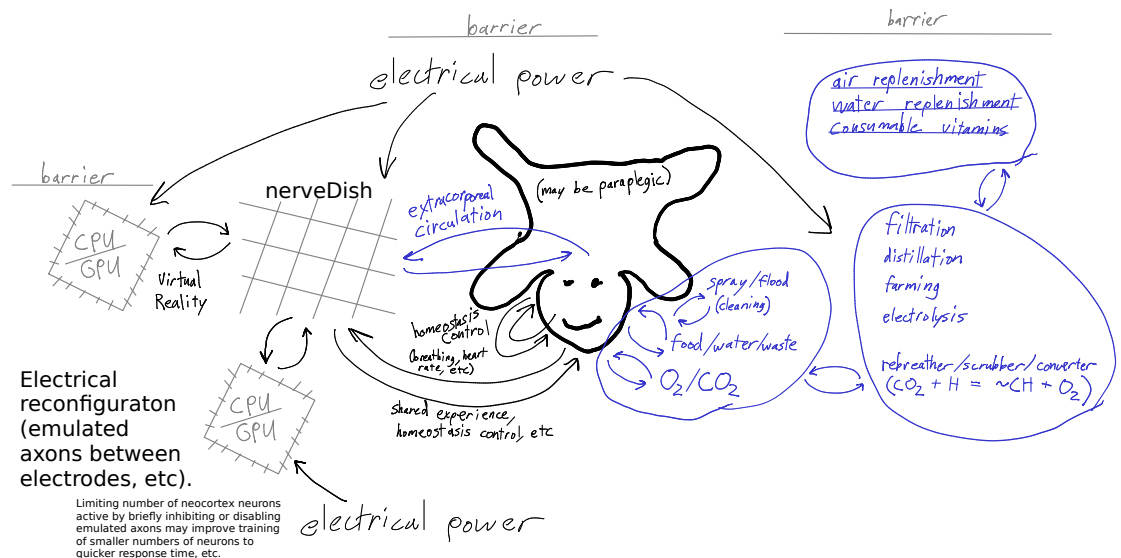 barrier
barrier
electrical power
air replenishment
water replenishment
consumable vitamins
barrier
nerveDish
(may be paraplegic)
extracorporeal
circulation
CPU
GPU
Virtual
Reality
filtration
distillation
farming
electrolysis
spray/flood
(cleaning)
food/water/waste
O₂/CO₂
homeostasis
control
(breathing, heart
rate, etc)
rebreather/scrubber/converter
(CO₂ + H = ~CH + O₂)
shared experience,
homeostasis control, etc
Electrical
reconfiguraton
(emulated
axons between
electrodes, etc).
CPU
GPU
Limiting number of neocortex neurons
active by briefly inhibiting or disabling
emulated axons may improve training
of smaller numbers of neurons to
quicker response time, etc.
electrical power